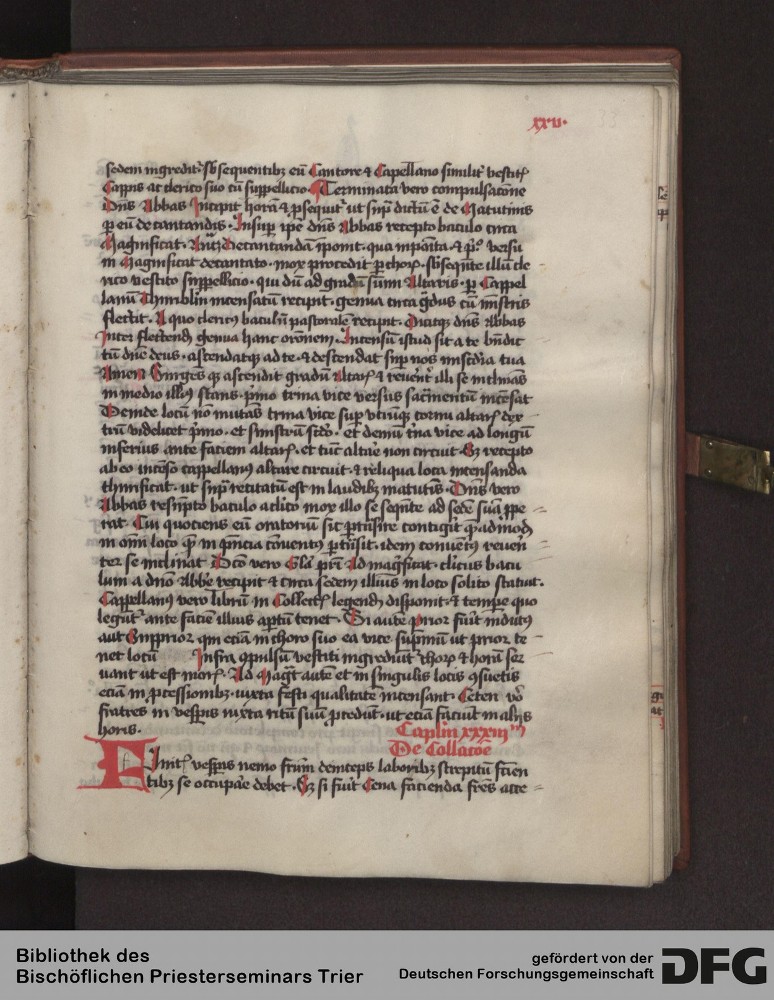 xxv. 33
sedem ingredit᷑ sb̅sequentibꝫ eū Cantore ⁊ Capellano similit᷑ vestit᷑
Cappis ac clerico suo cū suppellicio Terminata vero compulsacōne
Dn̄s Abbas Incipit horā ⁊ ꝓsequit᷑ ut sup᷑ dictū ē de Matutinis
ꝑ eū decantandis. Insuꝑ ipe dn̄s Abbas recepto baculo circa
Magnificat. decantandā īponit. qua inposita ⁊ p̊ versu
in Magnificat decantato. mox procedit ꝑ chorū. sb̅seqn̄te illū cle
rico vestito suppellicio. qui dū ad gradū sūmi Altaris. ꝑ Cappel
lanū Thuriblm̄ incensatū recipit. genua circa g̊dus cū
flectit. A quo clericꝰ baculū pastoralē recipit. Dicitqꝫ dn̄s Abbas
Inter flectend̄ genua hanc orōnem. Incensū istud sit a te bn̄dic
tū dn̄e deus. ascendatqꝫ ad te. ⁊ descendat sup᷑ nos mīscd̄ia tua
Amen Surgēs qꝫ ascendit gradū Altar᷑ ⁊ reuēnt᷑ illi se inclinās
in medio illiꝰ stans. p̄mo trina vice versus sacrm̄entū incēsat
Deinde locū nō mutās trina vice suꝑ vtrūqꝫ cornu altar᷑ dex
trū videlicet p̄mo. et sinistrū scd̄o. et demū t̄na vice ad longū
inferius ante faciem altar᷑. et tūc altare non circuit. Sꝫ recepto
ab eo incēso cappellanꝰ altare circuit. ⁊ reliqua loca incensanda
thurificat. ut sup᷑ recitatū est in laudibꝫ matutīs. Dn̄s vero
Abbas resūpto baculo a clico mox illo se seqn̄te ad sedē suā ꝓpe
rat. Cui quociens eū oratoriū sic ꝑtrāsire contigit qꝫ admod̄
in om̄i loco qꝫ in p̄ncia cōuentꝰ ꝑtrāsit. idem conuentꝰ reuen̄
ter se inclinat Dco᷑ vero Glā pr̄i Ad magnificat. clicus bacu
lum a dn̄o Abbe recipit ⁊ circa sedem illius in loco solito statuit.
Cappellanꝰ vero librū in Collect᷑ legend̄ disponit. ⁊ tempe quo
legit᷑ ante faciē illius aptū tenet. Si autē prior fuit indutꝰ
aut Supprior qui eciā in choro suo ea vice sup̄mū ut prior te
net locū Infra ꝯpulsū vestiti ingrediūt᷑ chorū ⁊ horū ser
uant ut est moris. Ad Magt᷑ autē et in singulis locis ꝯsuetis
eciā in ꝓcessionibꝫ. iuxta festi qualitatē incensant. Ceteri v̊o
fratres in vespis iuxta ritū suū ꝓcedūt. ut eciā faciūt in alijs
horis. Caplm̄ xxxiiiᵐ
De Collacōe
Finit᷑ vespis nemo fr̄um deinceps laboribꝫ strepitū facien
tibꝫ se occupare debet. Sꝫ si fuit Cena facienda fr̄es acce
Bibliothek des
Bischöflichen Priesterseminars Trier
gefördert von der
Deutschen Forschungsgemeinschaft DFG